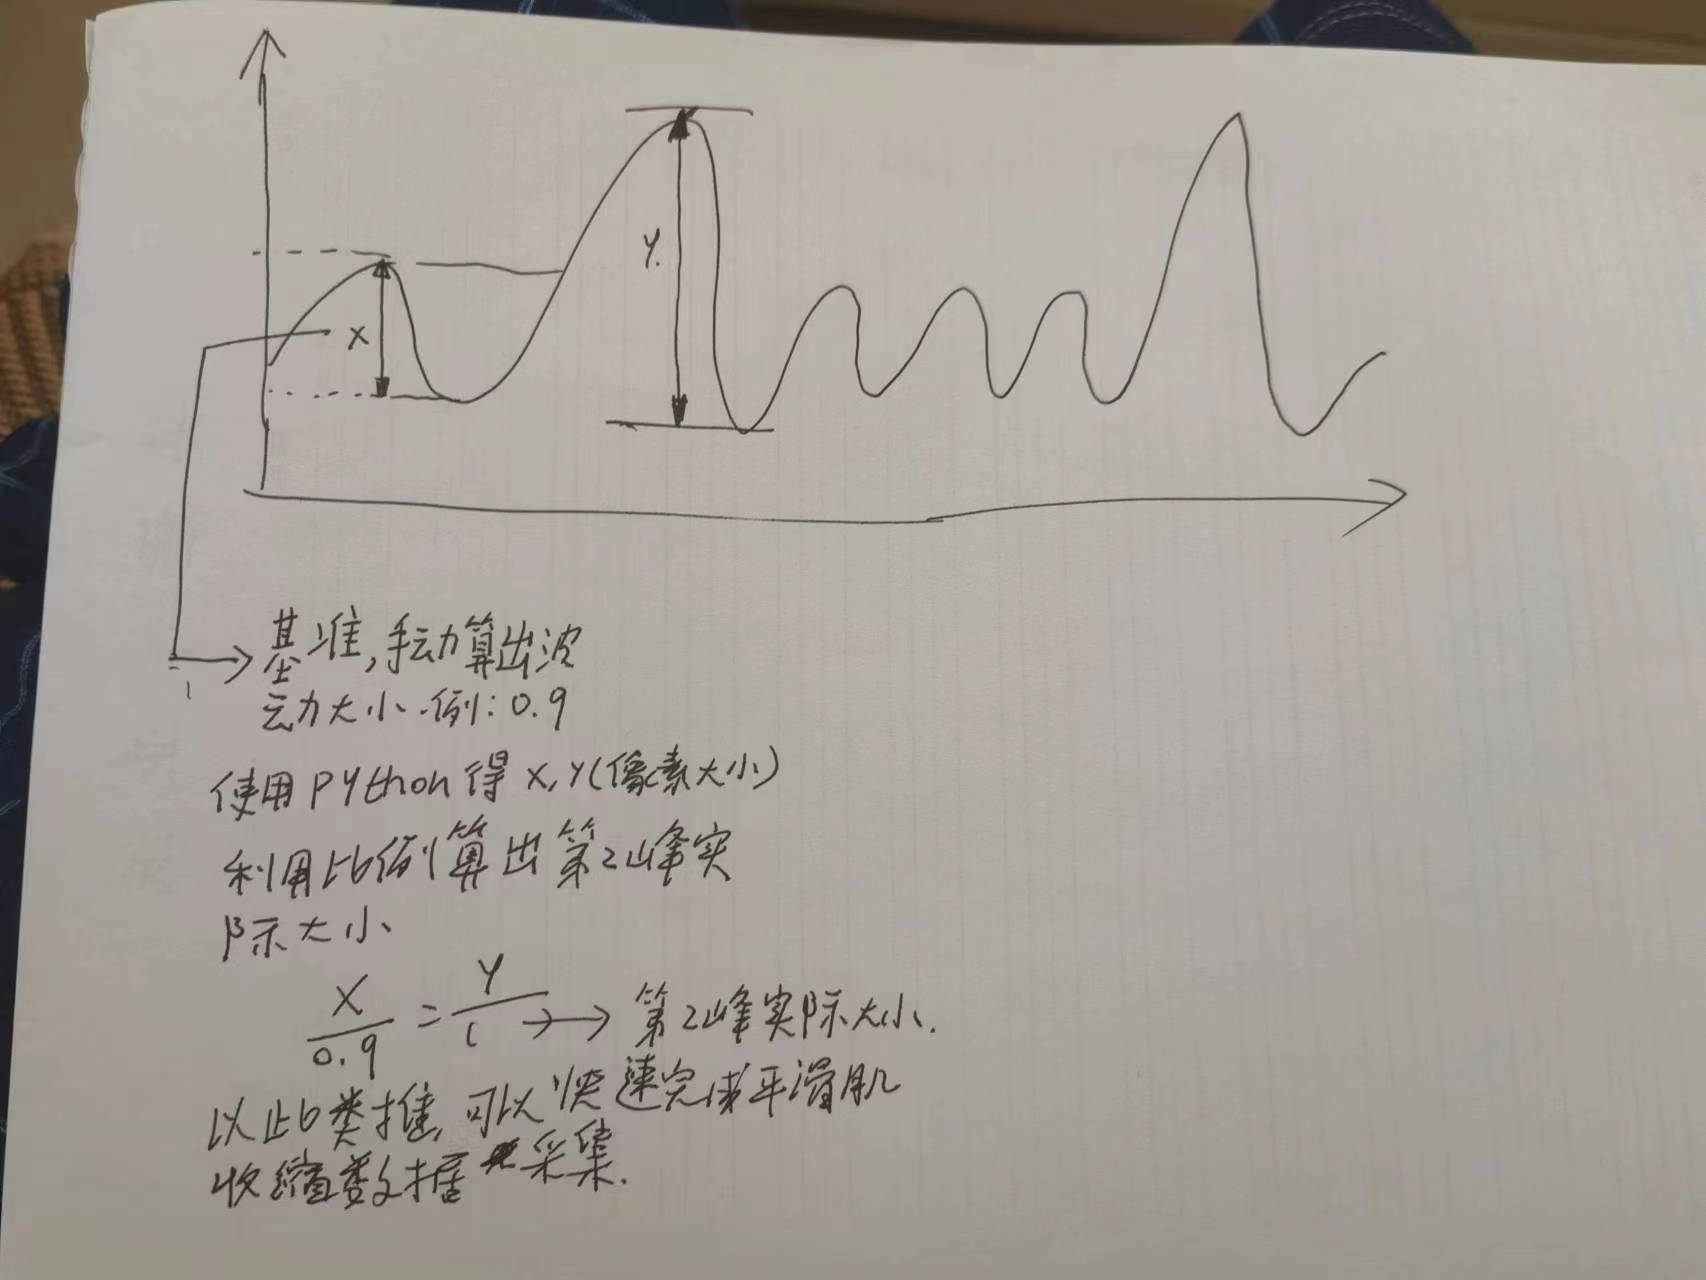 X
Y.
基准,手动算出波
动大小.例:0.9
使用PYthon得X,Y(像素大小)
利用比例算出第2峰实
际大小
X/0.9 = Y/( → 第2峰实际大小.
以此类推,可以快速完成平滑肌
收缩数据采集.